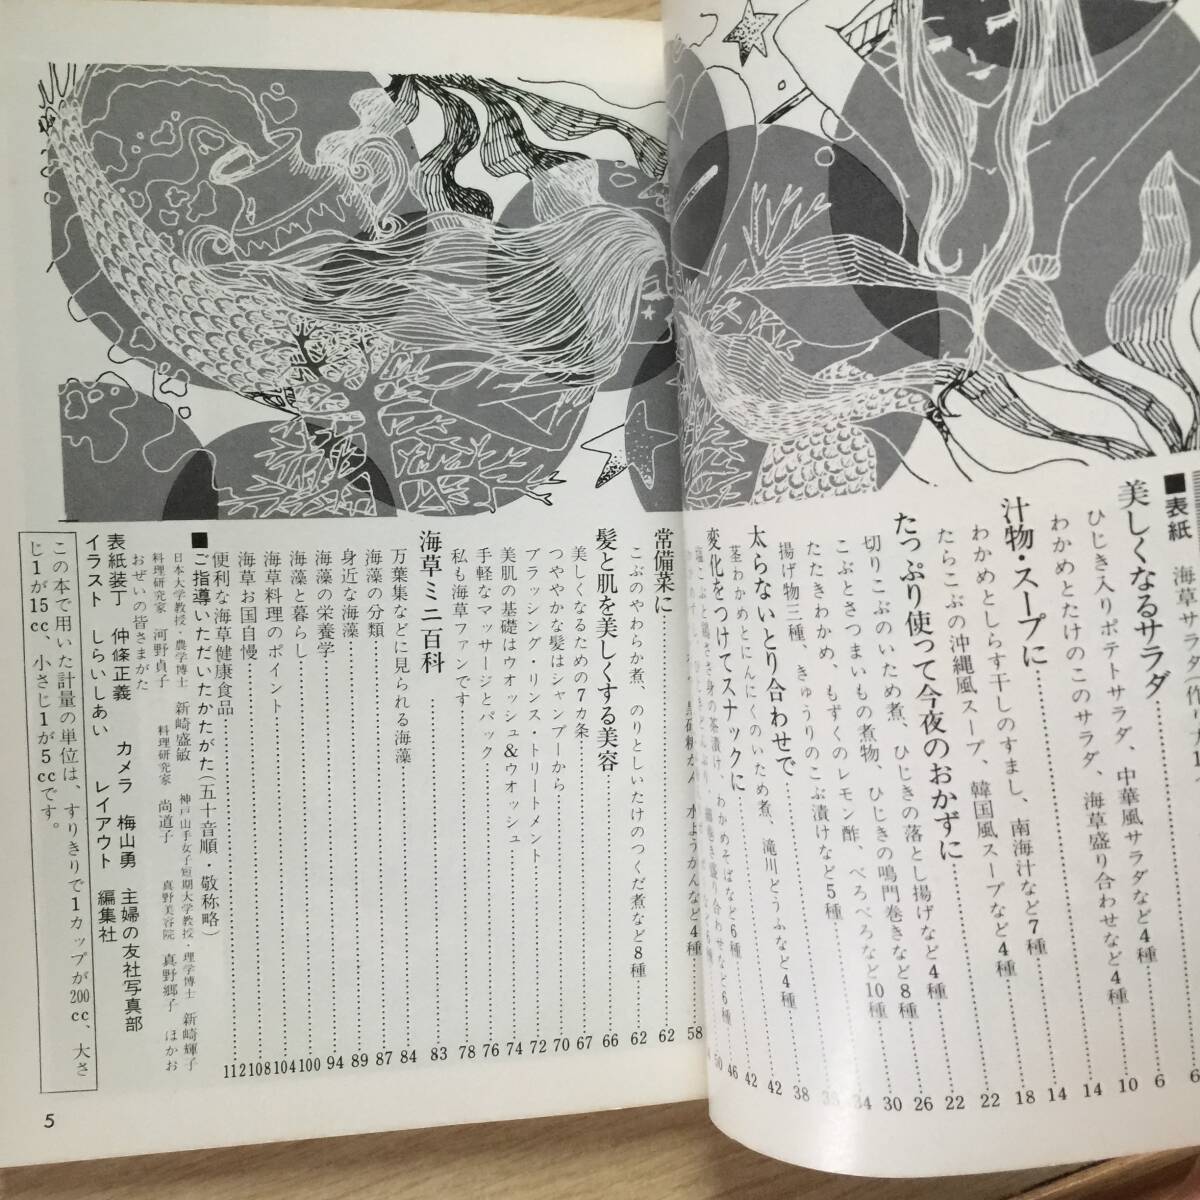 ■表紙　海草サラダ(作り方
美しくなるサラダ……6
ひじき入りポテトサラダ、中華風サラダなど4種……10
わかめとたけのこのサラダ、海草盛り合わせなど4種……14
汁物・スープに……14
わかめとしらす干しのすまし、南海汁など7種……18
たらこぶの沖縄風スープ、韓国風スープなど4種……22
たっぷり使って今夜のおかずに……22
切りこぶのいため煮、ひじきの落とし揚げなど4種……26
こぶとさつまいもの煮物、ひじきの鳴門巻きなど8種……30
たたきわかめ、もずくのレモン酢、べろべろなど10種……34
揚げ物三種、きゅうりのこぶ漬けなど5種……38
太らないとり合わせで……42
茎わかめとにんにくのいため煮、滝川どうふなど4種……42
変化をつけてスナックに……46
塩こぶと鶏ささ身の茶漬け、わかめそばなど6種……50
水ようかんなど4種……58
常備菜に……62
こぶのやわらか煮、のりとしいたけのつくだ煮など8種……62
髪と肌を美しくする美容……66
美しくなるための7カ条……67
つややかな髪はシャンプーから……70
ブラッシング・リンス・トリートメント……72
美肌の基礎はウオッシュ&ウオッシュ……74
手軽なマッサージとパック……76
私も海草ファンです……78
海草ミニ百科……83
万葉集などに見られる海藻……84
海藻の分類……87
身近な海藻……89
海藻の栄養学……94
海藻と暮らし……100
海草料理のポイント……104
海草お国自慢……108
便利な海草健康食品……112
■ご指導いただいたかたがた(五十音順・敬称略)
日本大学教授・農学博士　新崎盛敏　神戸山手女子短期大学教授・理学博士　新崎輝子
料理研究家　河野貞子　料理研究家　尚道子　真野美容院　真野郷子　ほかお
おぜいの皆さまがた
表紙装丁　仲條正義　カメラ　梅山勇　主婦の友社写真部
イラスト　しらいしあい　レイアウト　編集社
この本で用いた計量の単位は、すりきりで1カップが200cc、大さ
じ1が15cc、小さじ1が5ccです。
5